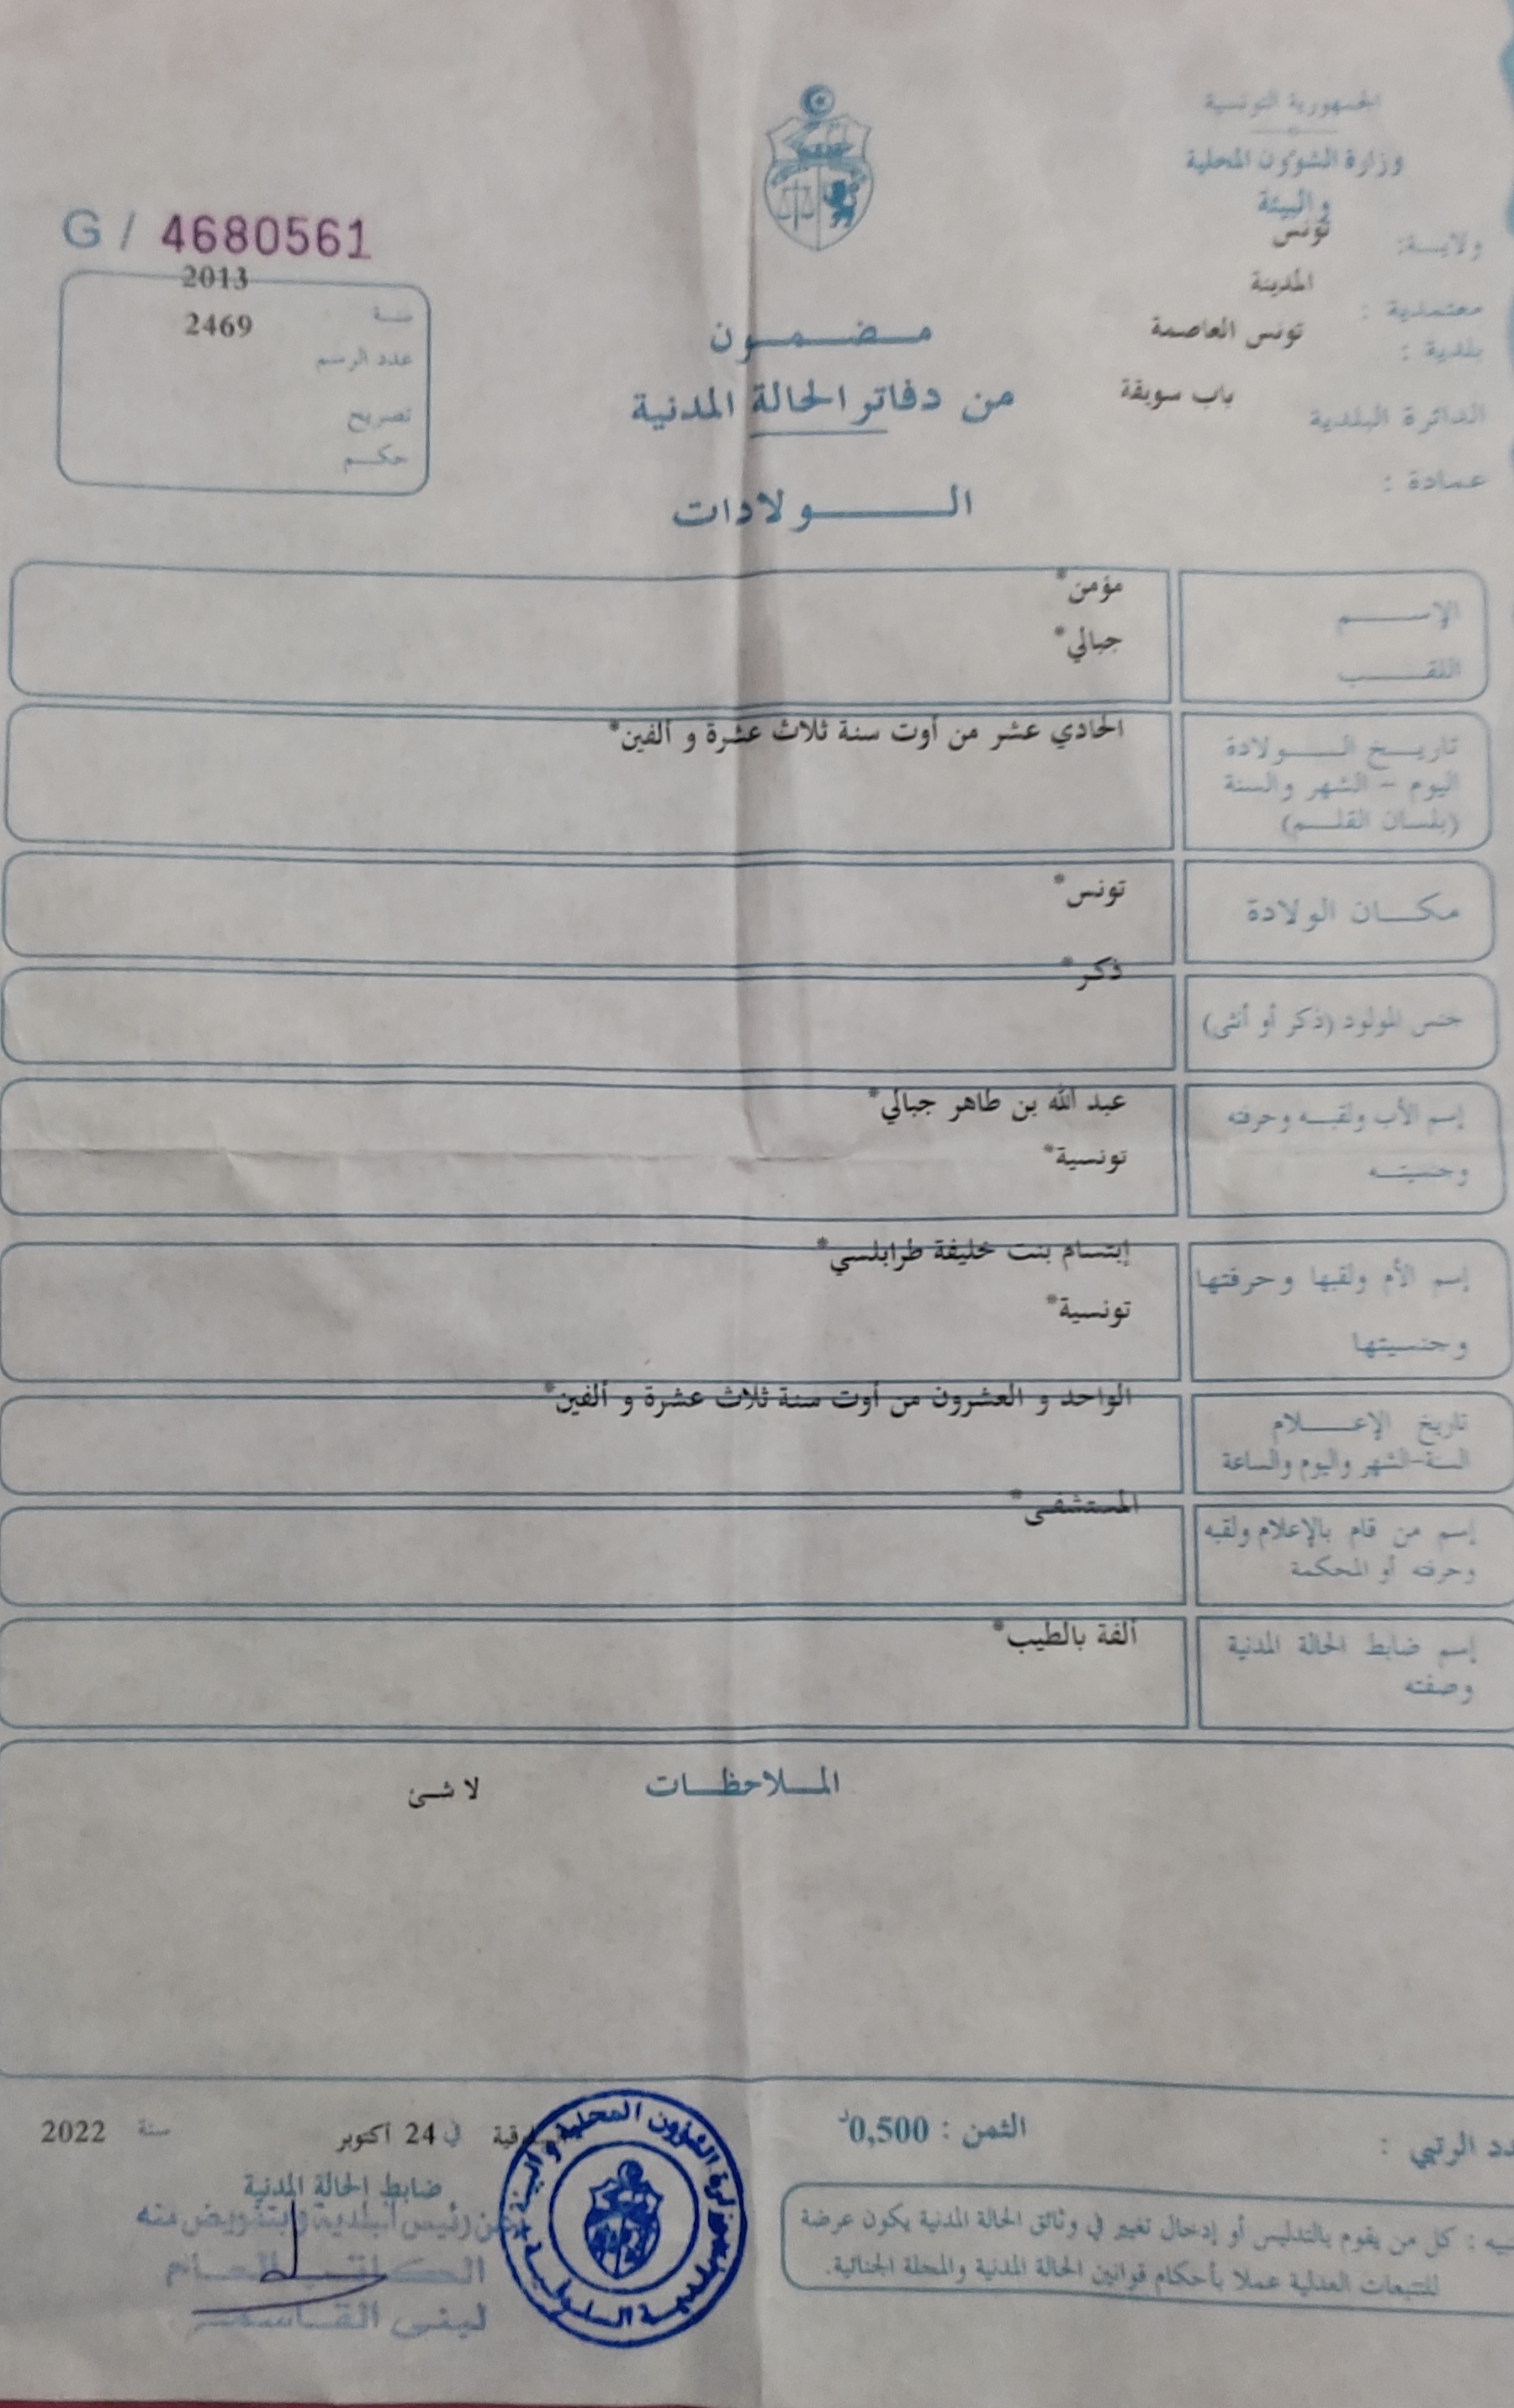 الجمهورية التونسية
وزارة الشؤون المحلية
والبيئة
ولايــة: تونس
معتمدية : المدينة
بلدية : تونس العاصمة
الدائرة البلدية باب سويقة
عمادة :
G / 4680561
سنة 2013
عدد الرسم 2469
تصريح
حكم
مضمون
من دفاتر الحالة المدنية
الولادات
الإسم مؤمن*
اللقب جبالي*
تاريخ الولادة الحادي عشر من أوت سنة ثلاث عشرة و ألفين*
اليوم - الشهر والسنة
(بلسان القلم)
مكان الولادة تونس*
جنس المولود (ذكر أو أنثى) ذكر*
إسم الأب ولقبه وحرفته عبد الله بن طاهر جبالي*
وجنسيته تونسية*
إسم الأم ولقبها وحرفتها إبتسام بنت خليفة طرابلسي*
وجنسيتها تونسية*
تاريخ الإعلام الواحد و العشرون من أوت سنة ثلاث عشرة و ألفين*
السنة-الشهر واليوم والساعة
إسم من قام بالإعلام ولقبه المستشفى*
وحرفته أو المحكمة
إسم ضابط الحالة المدنية ألفة بالطيب*
وصفته
الملاحظات لا شئ
الرتبي :
الثمن : 0,500د
في 24 أكتوبر سنة 2022
ضابط الحالة المدنية
عن رئيس البلدية وبتفويض منه
الكاتب العام
لبنى
وزارة الشؤون المحلية والبيئة
كل من يقوم بالتدليس أو إدخال تغيير في وثائق الحالة المدنية يكون عرضة
للتتبعات العدلية عملا بأحكام قوانين الحالة المدنية والمجلة الجنائية.